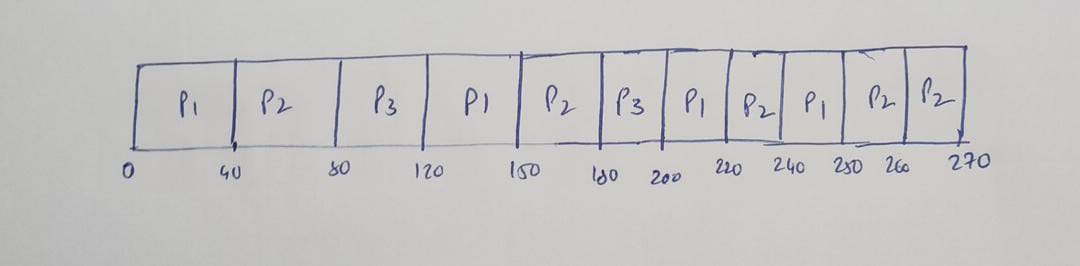 P1 P2 P3 P1 P2 P3 P1 P2 P1 P2 P2
0 40 80 120 150 180 200 220 240 250 260 270